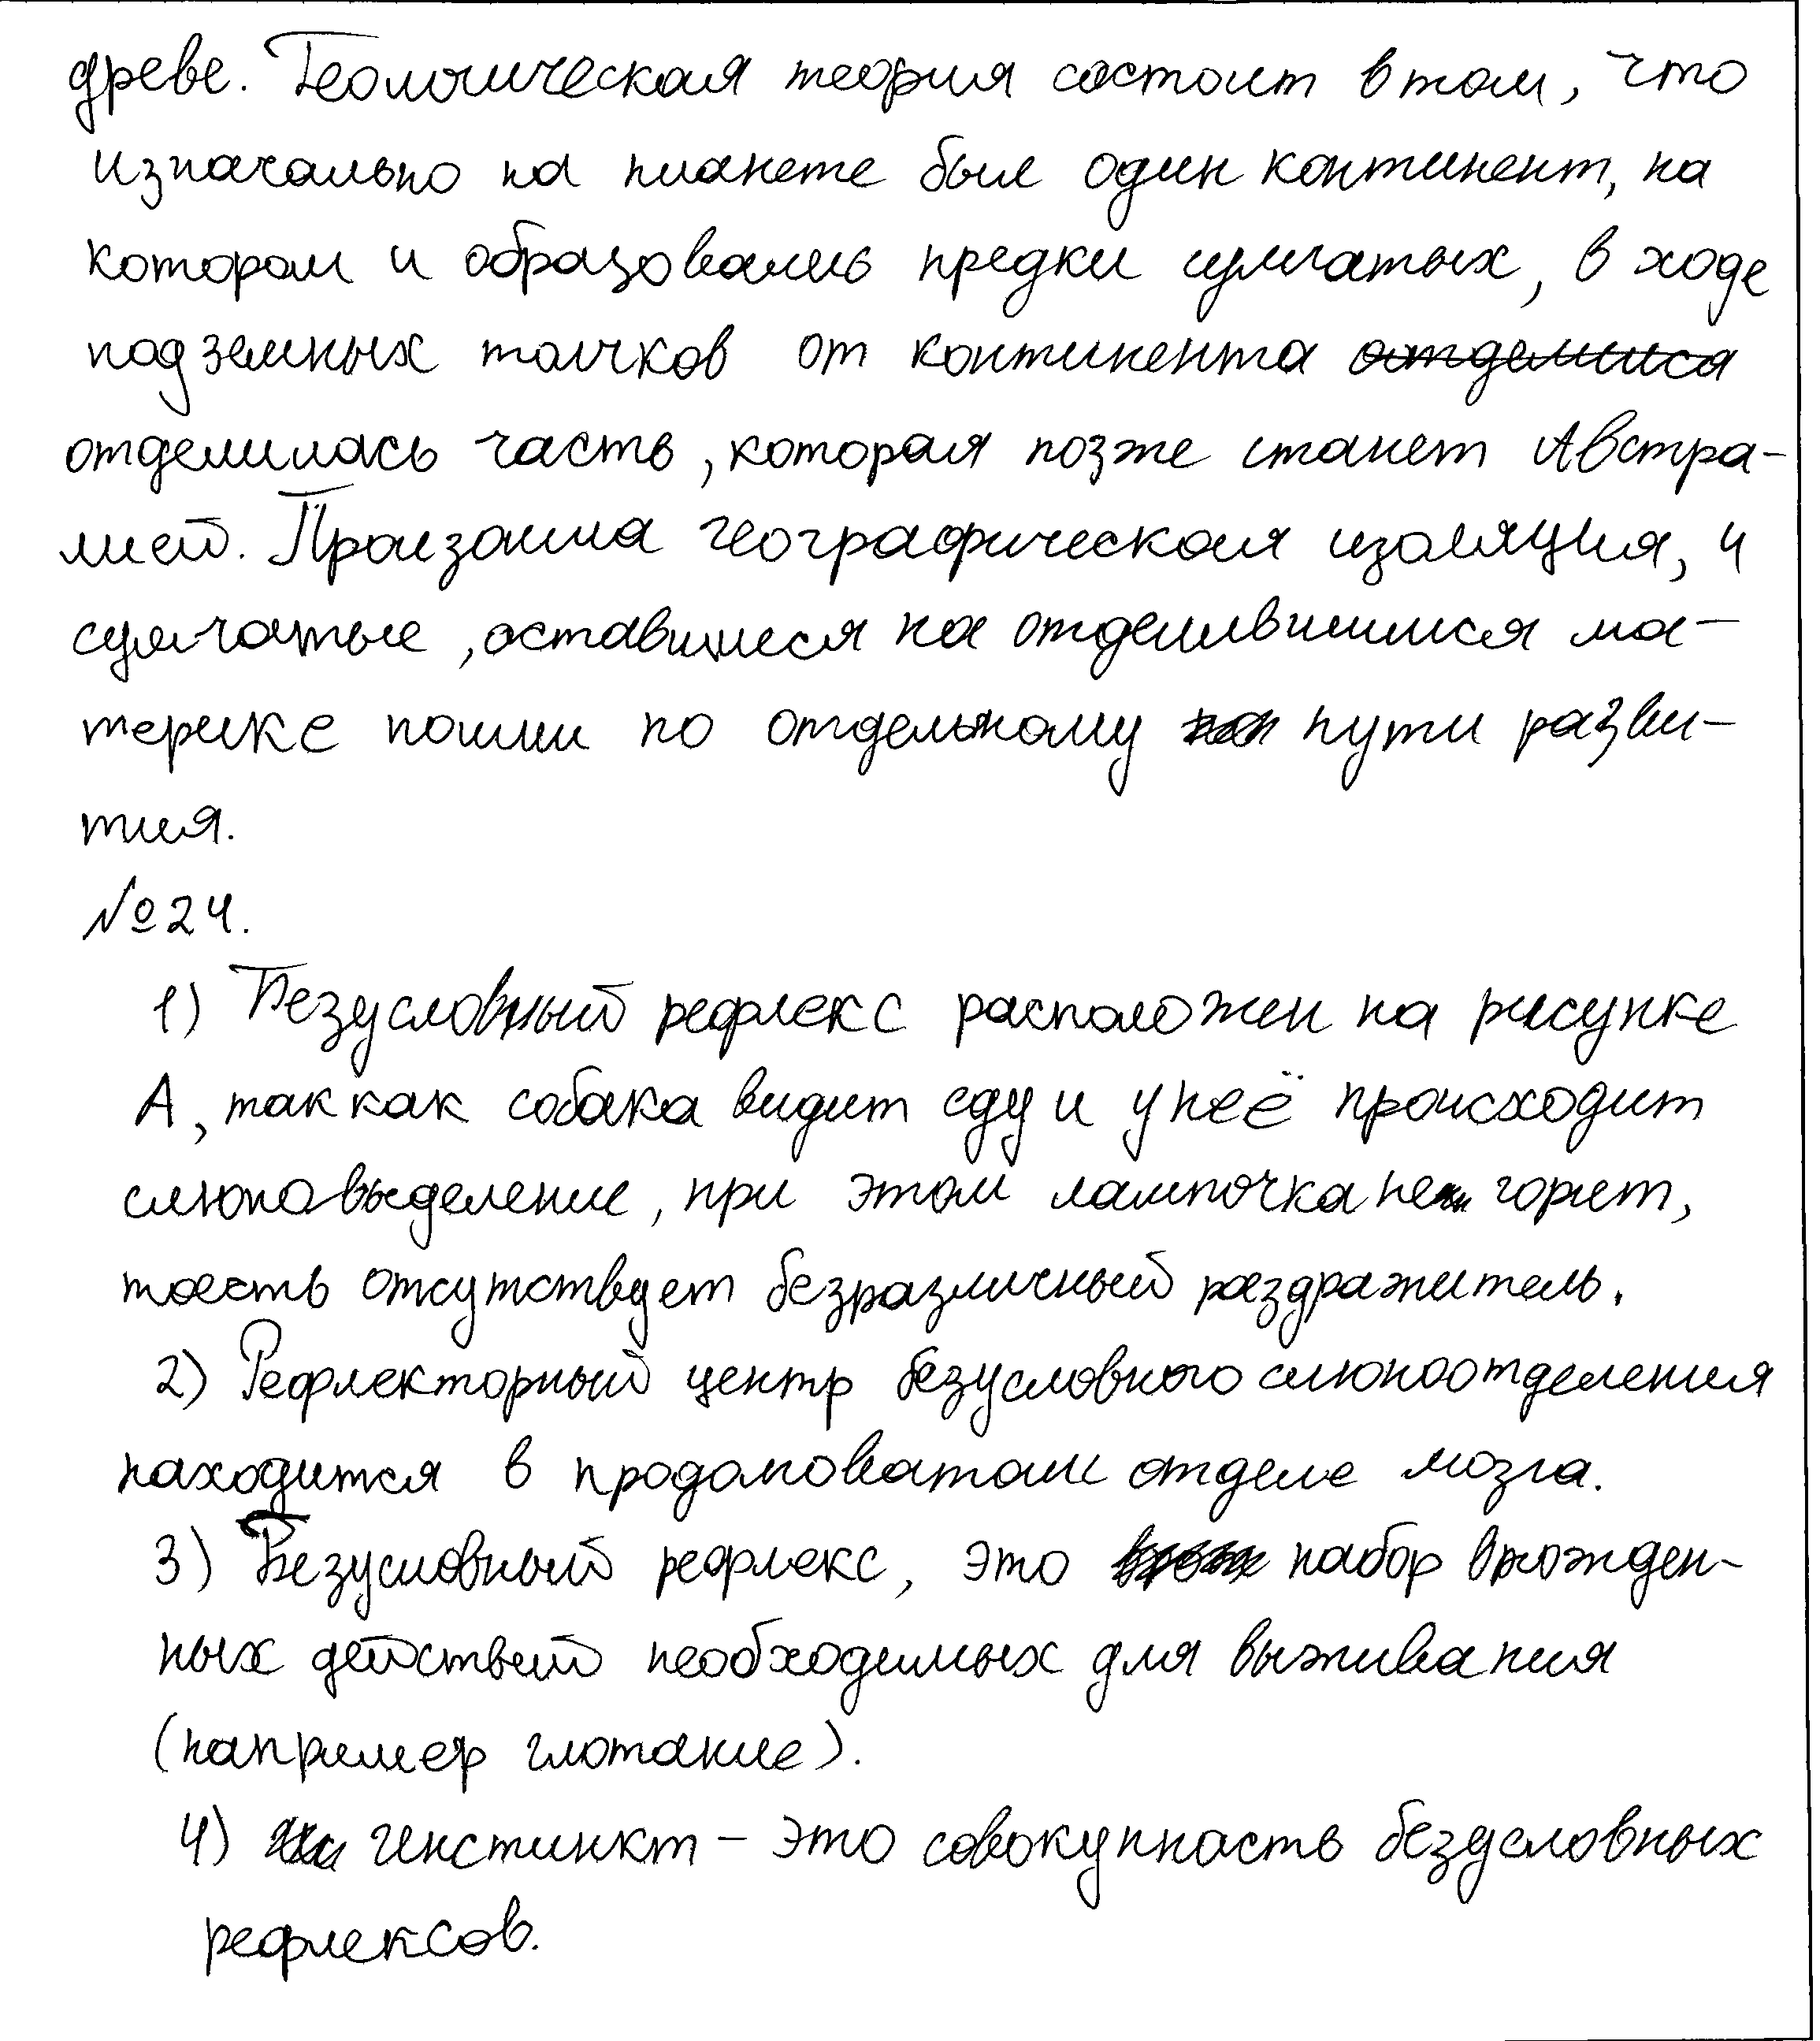 древе. Геологическая теория состоит в том, что
изначально на планете был один континент, на
котором и образовались предки сумчатых, в ходе
подземных толчков от континента отделился
отделилась часть, которая позже станет Австра-
лией. Произошла географическая изоляция, и
сумчатые, оставшиеся на отделившимся ма-
терике пошли по отдельному пути разви-
тия.
№24.
1) Безусловный рефлекс расположен на рисунке
А, так как собака видит еду и у неё происходит
слюновыделение, при этом лампочка не горит,
тоесть отсутствует безразличный раздражитель.
2) Рефлекторный центр безусловного слюноотделения
находится в продолговатом отделе мозга.
3) Безусловный рефлекс, это набор врожден-
ных действий необходимых для выживания
(например глотание).
4) Инстинкт – это совокупность безусловных
рефлексов.